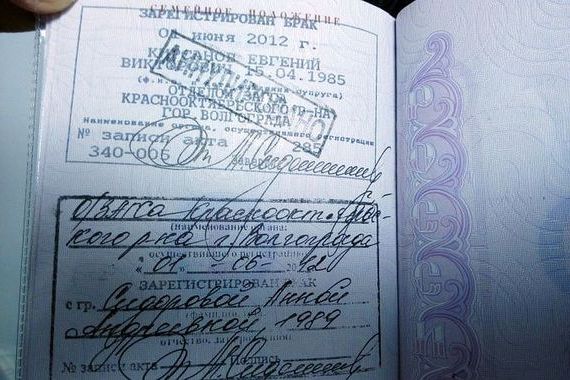 СЕМЕЙНОЕ ПОЛОЖЕНИЕ
ЗАРЕГИСТРИРОВАН БРАК
июня 2012 г.
ЕВГЕНИЙ
15.04.1985
супруга)
ОТДЕЛОМ
КРАСНООКТЯБРЬСКОГО Р-НА
ГОР. ВОЛГОГРАДА
Наименование органа, осуществившего регистрацию
№ записи акта 285
340-006
ОЗАГСа Краснооктябрьс-
кого р-на г. Волгограда
(наименование органа,
осуществившего регистрацию)
"01" 06
ЗАРЕГИСТРИРОВАН БРАК
с гр. Сидоровой Анной
Андреевной, 1989
отчество, дата рождения
№ записи акта Подпись